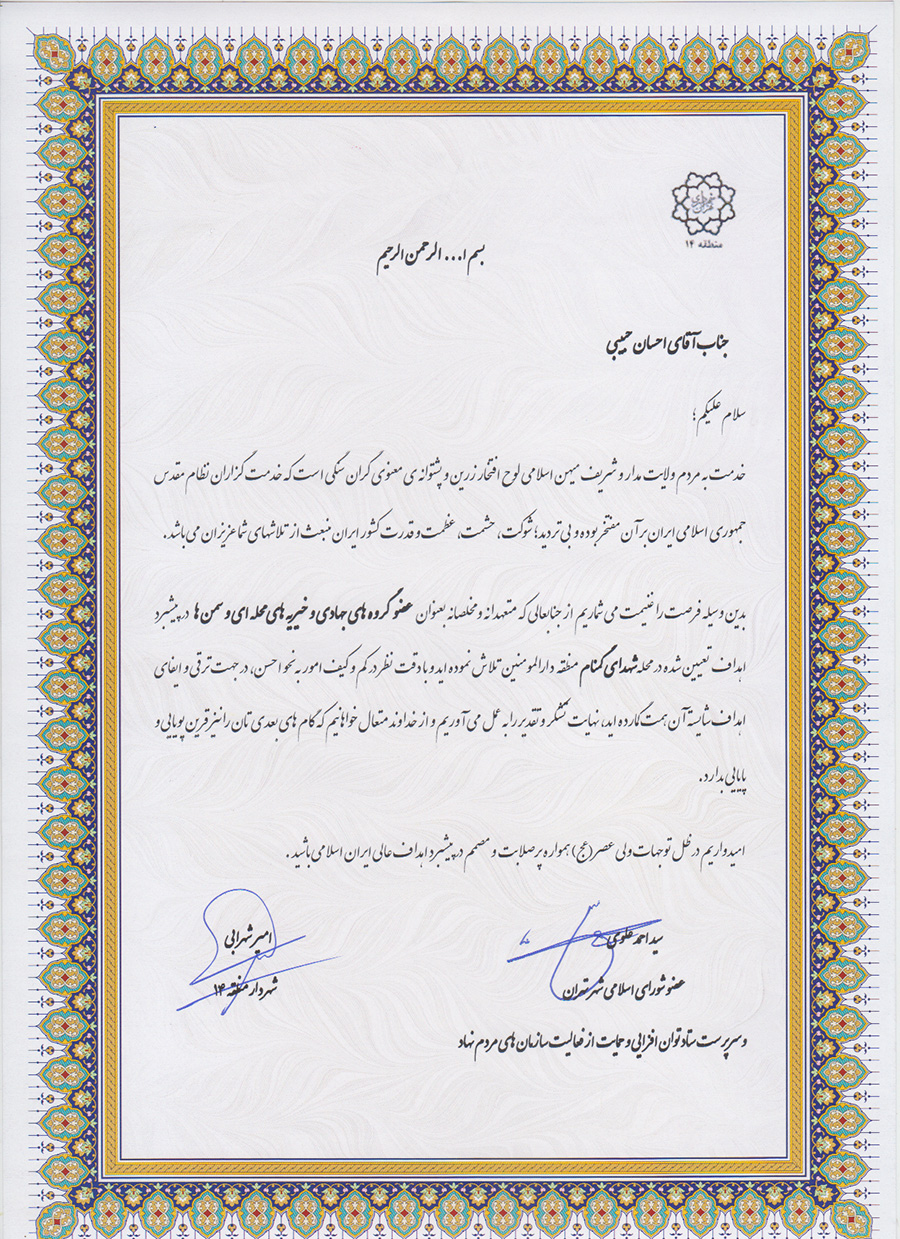 شهرداری تهران
منطقه ۱۴
بسم ا... الرحمن الرحیم
جناب آقای احسان حبیبی
سلام علیکم؛
خدمت به مردم ولایت مدار و شریف میهن اسلامی لوح افتخار زرین و پشتوانه ی معنوی گران سنگی است که خدمت گزاران نظام مقدس
جمهوری اسلامی ایران بر آن مفتخر بوده و بی تردید؛ شوکت، حشمت، عظمت و قدرت کشور ایران منبعث از تلاشهای شما عزیزان می باشد.
بدین وسیله فرصت را غنیمت می شماریم از جنابعالی که متعهدانه و مخلصانه بعنوان عضو گروه های جهادی و خیریه های محله ای و سمن ها در پیشبرد
اهداف تعیین شده در محله شهدای گمنام منطقه دارالمومنین تلاش نموده اید و با دقت نظر در کم و کیف امور به نحو احسن، در جهت ترقی و ایفای
اهداف شایسته آن همت گمارده اید، نهایت تشکر و تقدیر را به عمل می آوریم و از خداوند متعال خواهانیم که گام های بعدی تان را نیز قرین پویایی و
پایایی بدارد.
امیدواریم در ظل توجهات ولی عصر (عج) همواره پرصلابت و مصمم در پیشبرد اهداف عالی ایران اسلامی باشید.
سید احمد علوی
عضو شورای اسلامی شهر تهران
و سرپرست ستاد توان افزایی و حمایت از فعالیت سازمان های مردم نهاد
امیر شهرابی
شهردار منطقه ۱۴